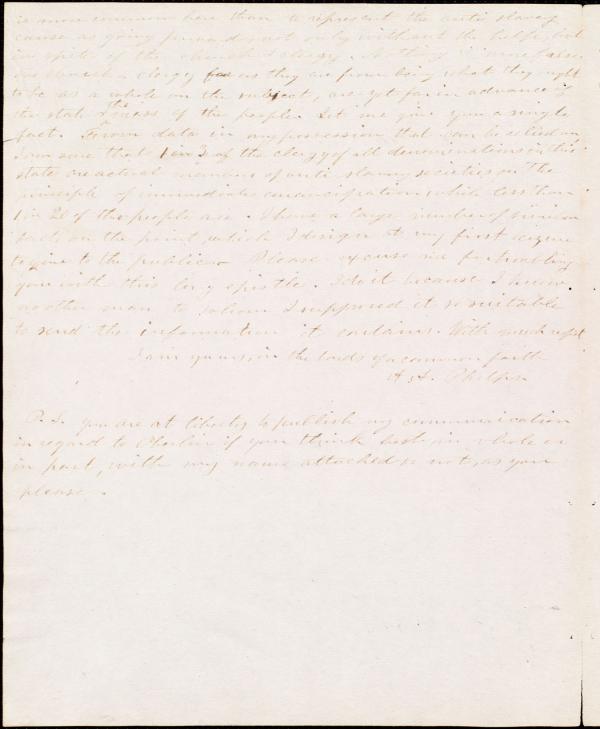 is more common here than to represent the anti slavery
cause as going forward, not only without the help, but
in spite of the church & clergy. Nothing is more false.
The church & clergy far as they are from being what they ought
to be as a whole on the subject, are yet far in advance of
the state & the mass of the people. Let me give you a single
fact. From data in my possession that can be relied on,
I am sure that 1 in 3 of the clergy of all denominations in this
state are actual members of anti slavery societies on the
principle of immediate emancipation, while less than
1 in 20 of the people are. I have a large number of similar
facts on the point, which I design at my first leisure
to give to the public. Please excuse me for troubling
you with this long epistle. I do it because I know
another man to whom I supposed it so suitable
to send the information it contains. With much respt
I am yours, in the bonds of a common faith
A. A. Phelps
P.S. you are at liberty to publish my communication
in regard to if you think best in whole or
in part, with my name attached or not, as you
please.